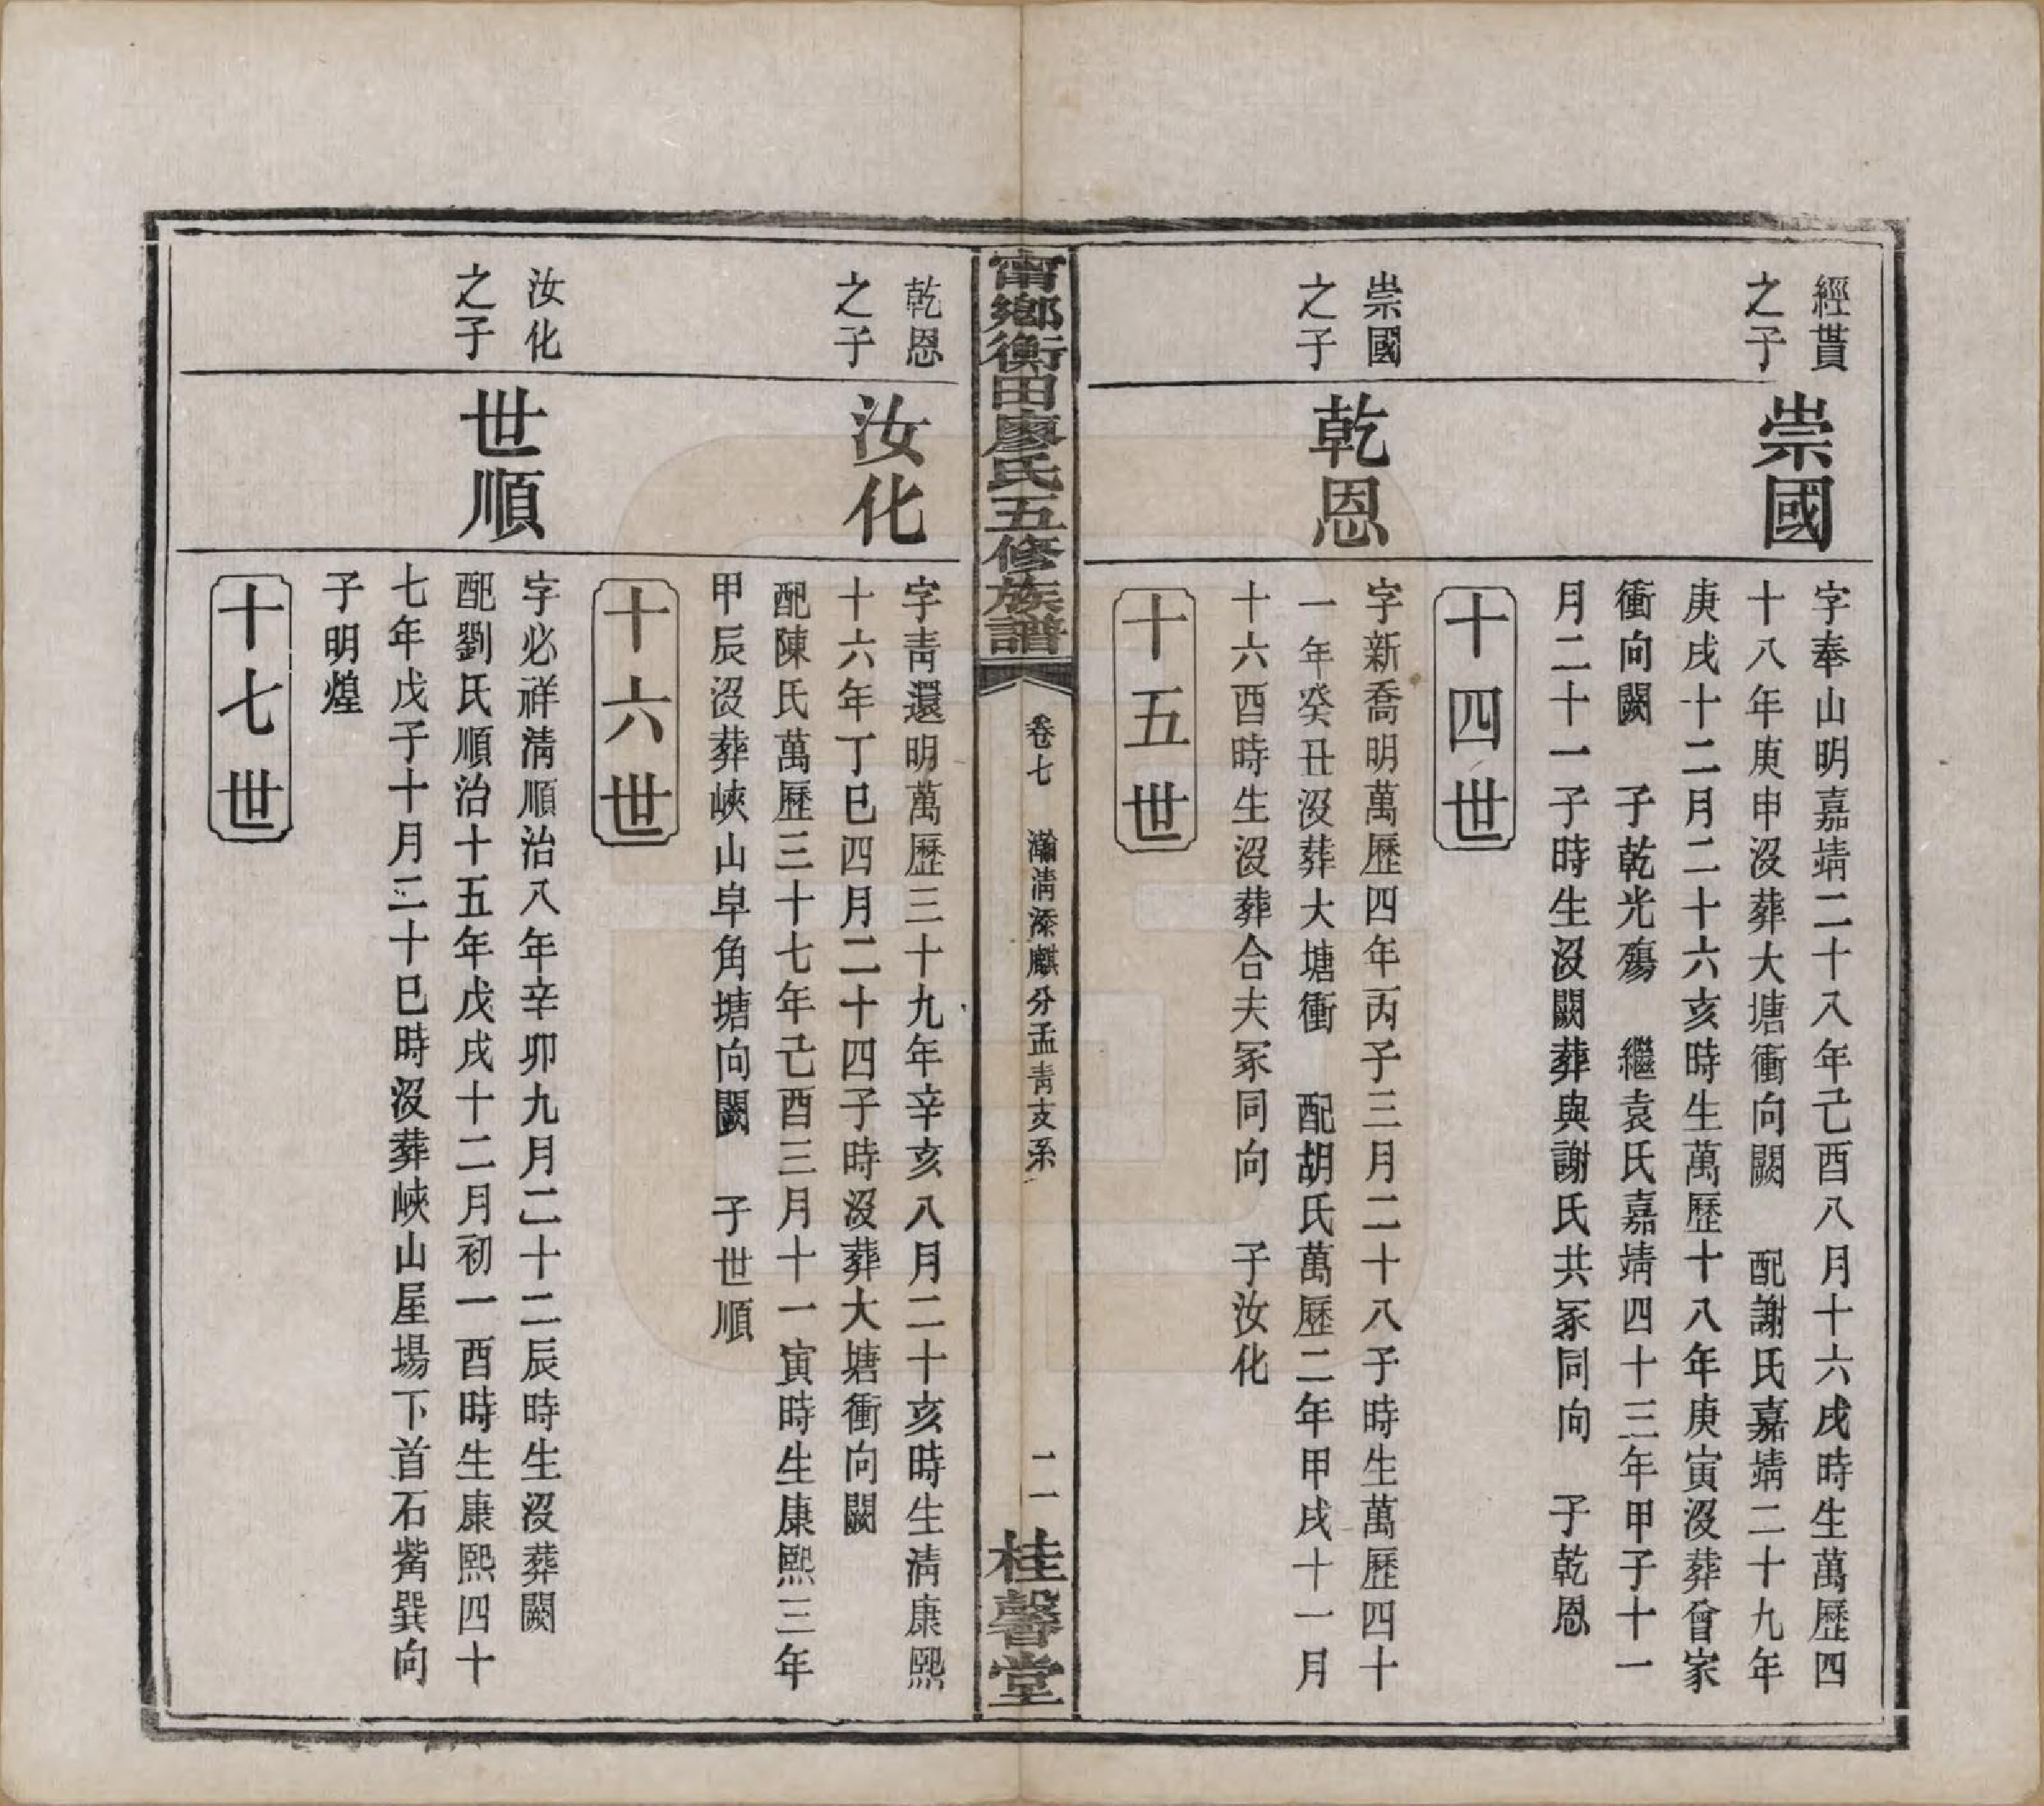 經貰
之子
崇國
字奉山明嘉靖二十八年己酉八月十六戌時生萬歷四
十八年庚申沒葬大塘衝向闕　配謝氏嘉靖二十九年
庚戌十二月二十六亥時生萬歷十八年庚寅沒葬曾家
衝向闕　子乾光殤　繼袁氏嘉靖四十三年甲子十一
月二十一子時生沒闕葬與謝氏共冢同向　子乾恩
十四世
崇國
之子
乾恩
字新喬明萬歷四年丙子三月二十八子時生萬歷四十
一年癸丑沒葬大塘衝　配胡氏萬歷二年甲戌十一月
十六酉時生沒葬合夫冢同向　子汝化
十五世
甯鄉衡田廖氏五修族譜
卷七　瀚淸添麒分孟靑支系
二一
桂馨堂
乾恩
之子
汝化
字靑還明萬歷三十九年辛亥八月二十亥時生淸康熙
十六年丁巳四月二十四子時沒葬大塘衝向闕
配陳氏萬歷三十七年己酉三月十一寅時生康熙三年
甲辰沒葬峽山皁角塘向闕　子世順
十六世
汝化
之子
世順
字必祥淸順治八年辛卯九月二十二辰時生沒葬闕
配劉氏順治十五年戊戌十二月初一酉時生康熙四十
七年戊子十月二十巳時沒葬峽山屋場下首石觜巽向
子明煌
十七世